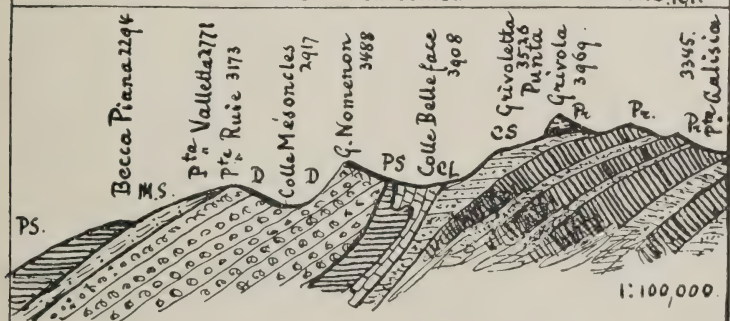 Becca Piana 2294
Pta Valletta 2771
" Ruie 3173
Colle Mésoncles 2917
G. Nomenon 3488
Colle Belleface 3908
Grivoletta 3526
Punta Grivola 3969.
3345.
Pta Calisia
PS.
M.S.
D
D
PS
CL
CS
Pr
Pr.
Pr
1:100,000.